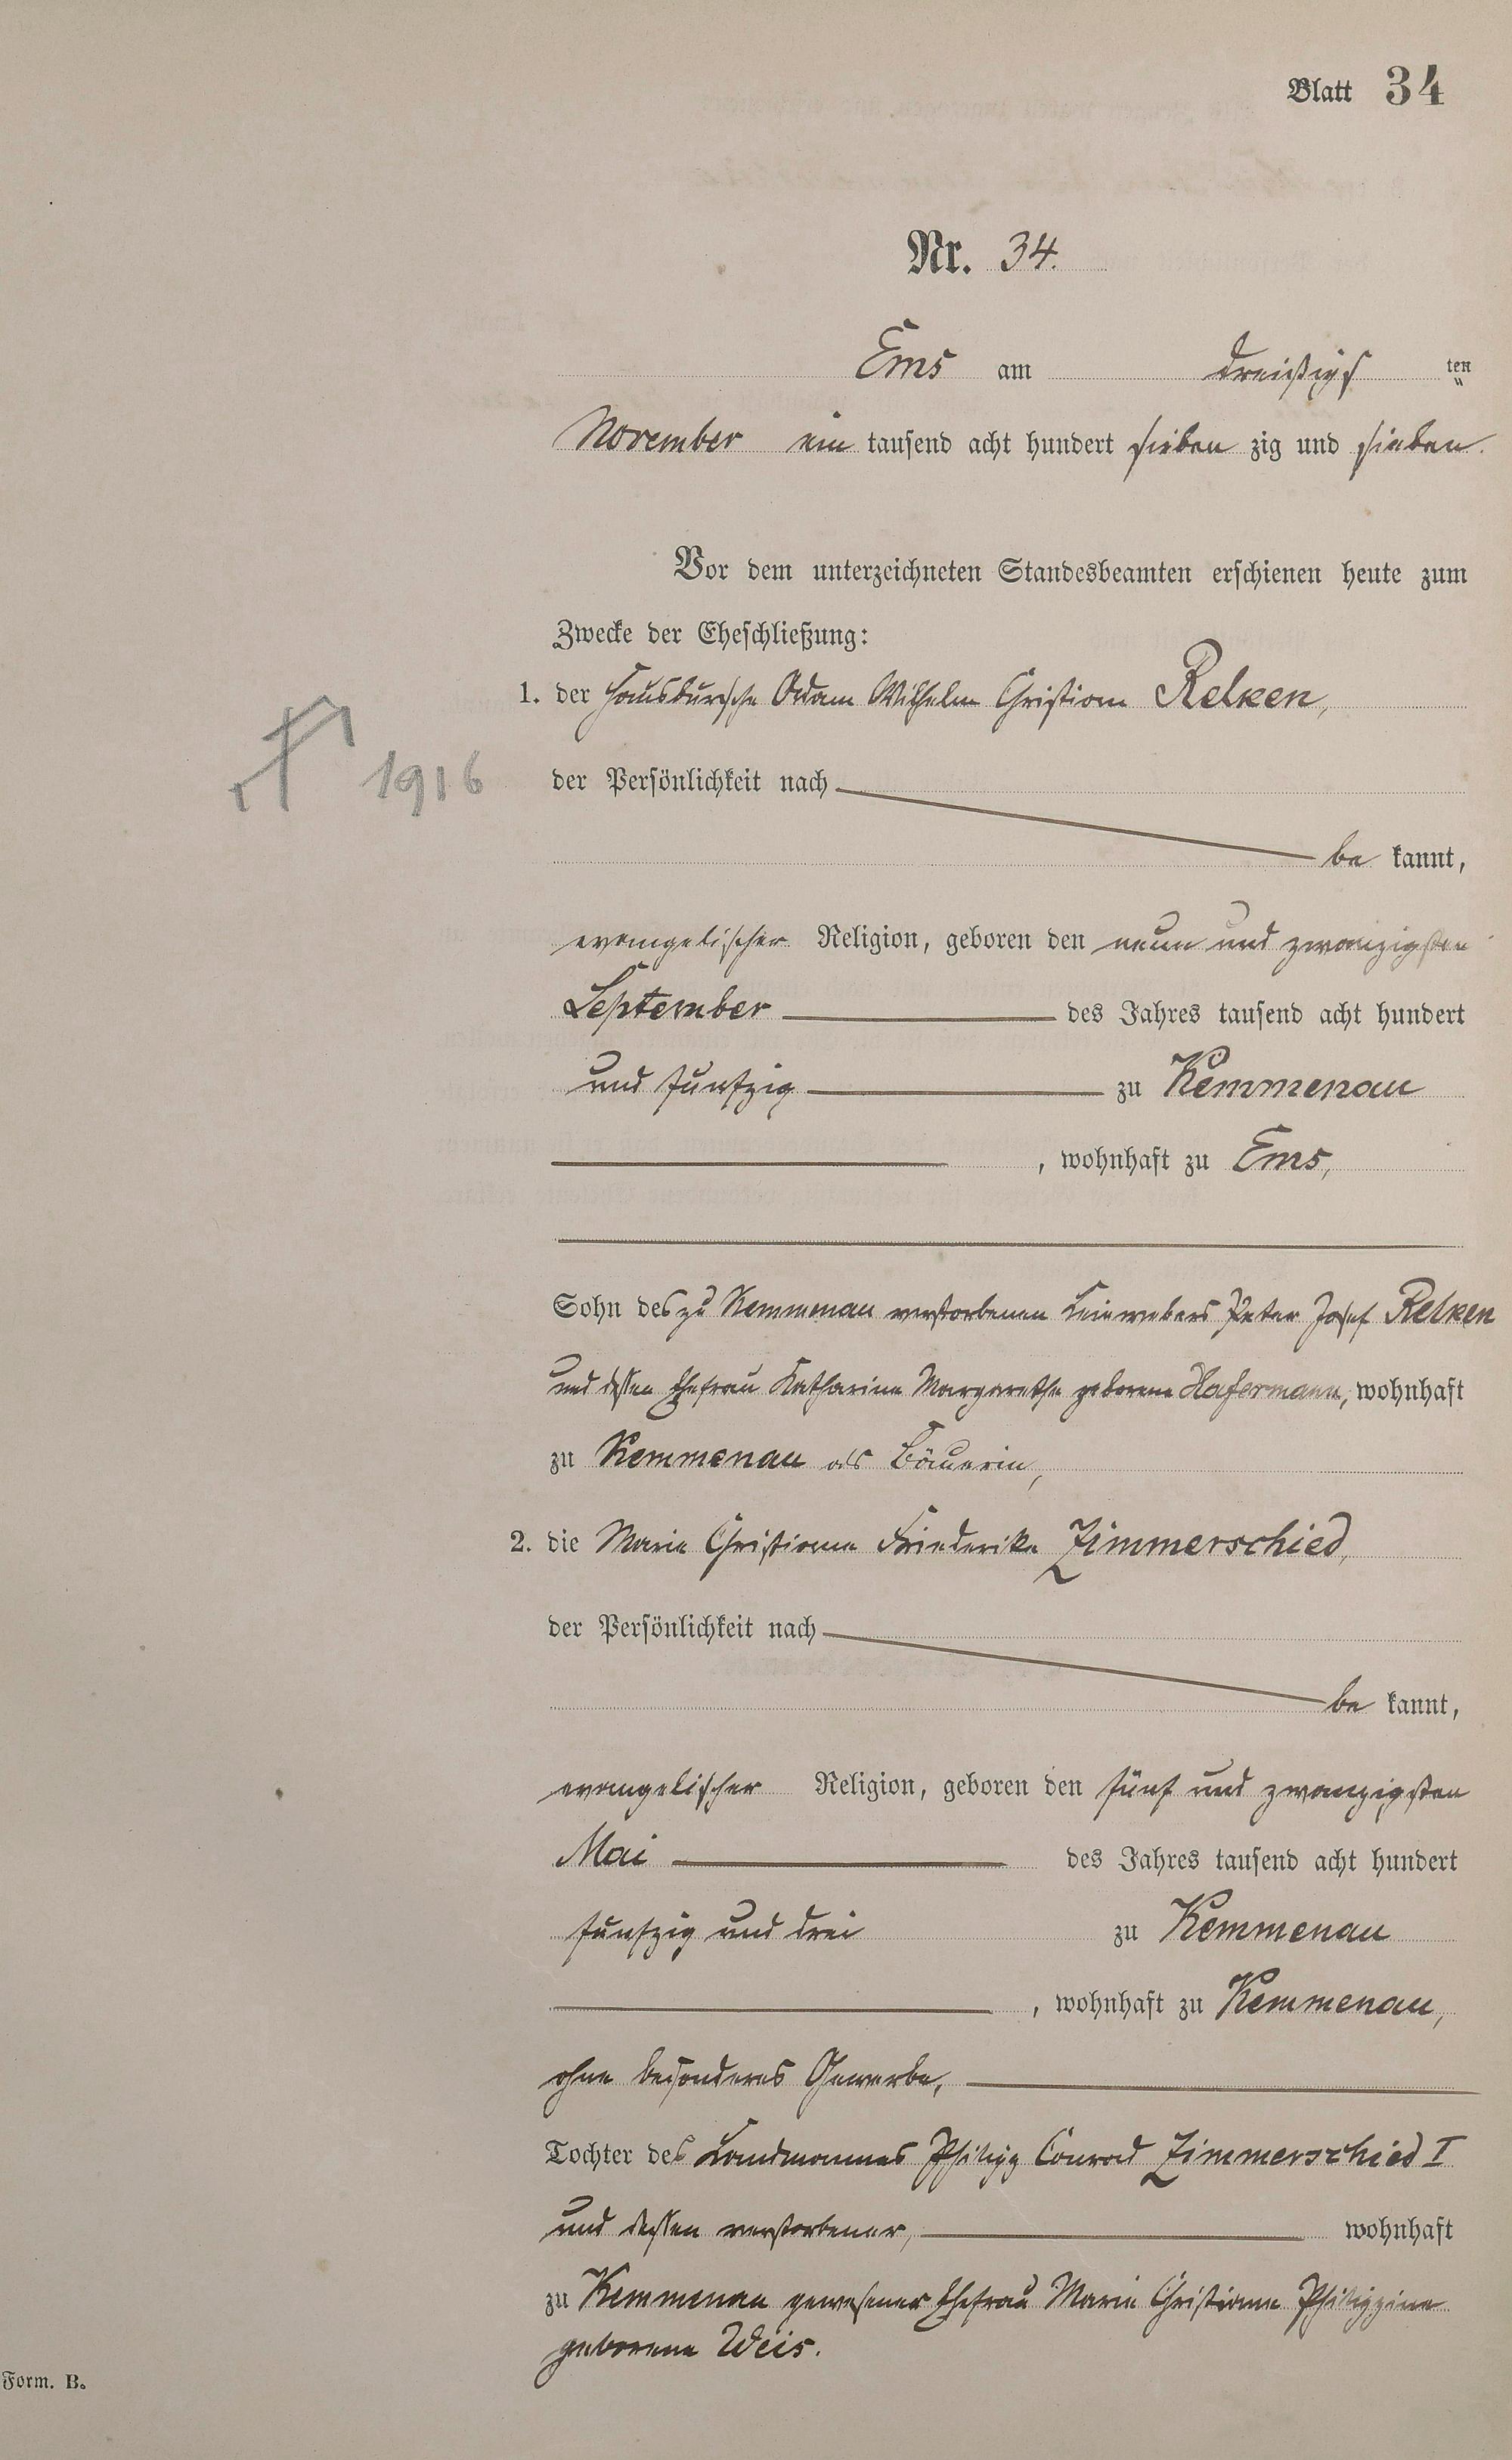 Blatt 34
Nr. 34.
Ems am dreißigs ten
"
November ein tausend acht hundert sieben zig und sieben.
Vor dem unterzeichneten Standesbeamten erschienen heute zum
Zwecke der Eheschließung:
1. der Hausbursche Adam Wilhelm Christian Relken,
1916
der Persönlichkeit nach
be kannt,
evangelischer Religion, geboren den neun und zwanzigsten
September des Jahres tausend acht hundert
und fünfzig zu Kemmenau
, wohnhaft zu Ems,
Sohn des zu Kemmenau verstorbenen Leinwebers Peter Josef Relken
und dessen Ehefrau Katharina Margarethe geborene Hafermann, wohnhaft
zu Kemmenau als Bäuerin,
2. die Marie Christiane Friederike Zimmerschied,
der Persönlichkeit nach
be kannt,
evangelischer Religion, geboren den fünf und zwanzigsten
Mai des Jahres tausend acht hundert
fünfzig und drei zu Kemmenau
, wohnhaft zu Kemmenau,
ohne besonderes Gewerbe,
Tochter des Landmannes Philipp Conrad Zimmerschied I
und dessen verstorbener, wohnhaft
zu Kemmenau gewesener Ehefrau Marie Christiane Philippine
geborene Weis.
Form. B.